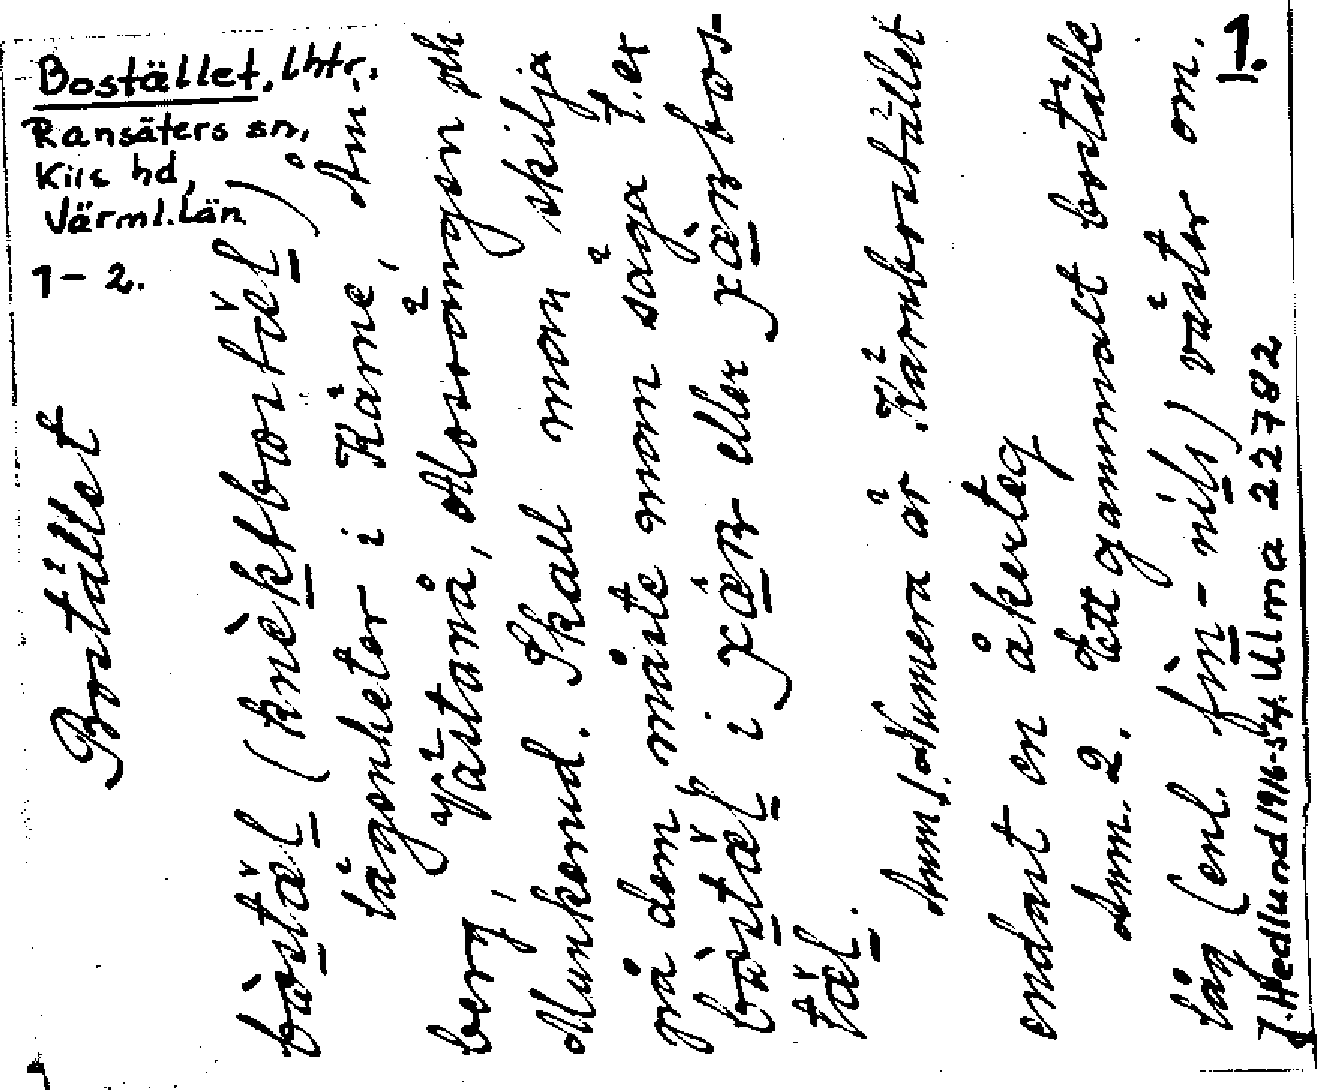 Bostället, lhtr,
Ransäters sn,
Kils hd,
Värml. län
1-2.
1.
Bostället
bòstäl (knèktbostäl)
lägenheter i Kärne,
Västanå, Mosängen och
berg, Munkerud. Skall man skilja
på dem måste man säga t.ex
bòstäl i eller
täl.
Anm 1. Numera är Kärnbostället
endast en åkerteg
Anm. 2. Ett gammalt boställe
låg (enl. fìn-nils) väster om.
J. Hedlund 1916-54. Ulma 22782